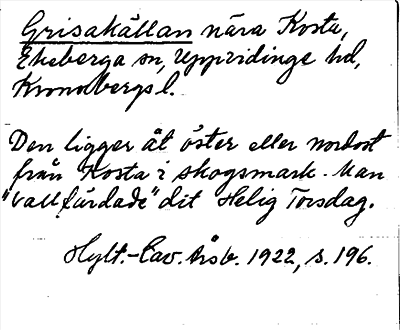 Grisakällan nära Kosta,
Ekeberga sn, Uppvidinge hd,
Kronobergs l.
Den ligger åt öster eller nordost
från Kosta i skogsmark. Man
"vallfärdade" dit Helig Torsdag.
Hylt.-Cav. Årsb. 1922, s. 196.